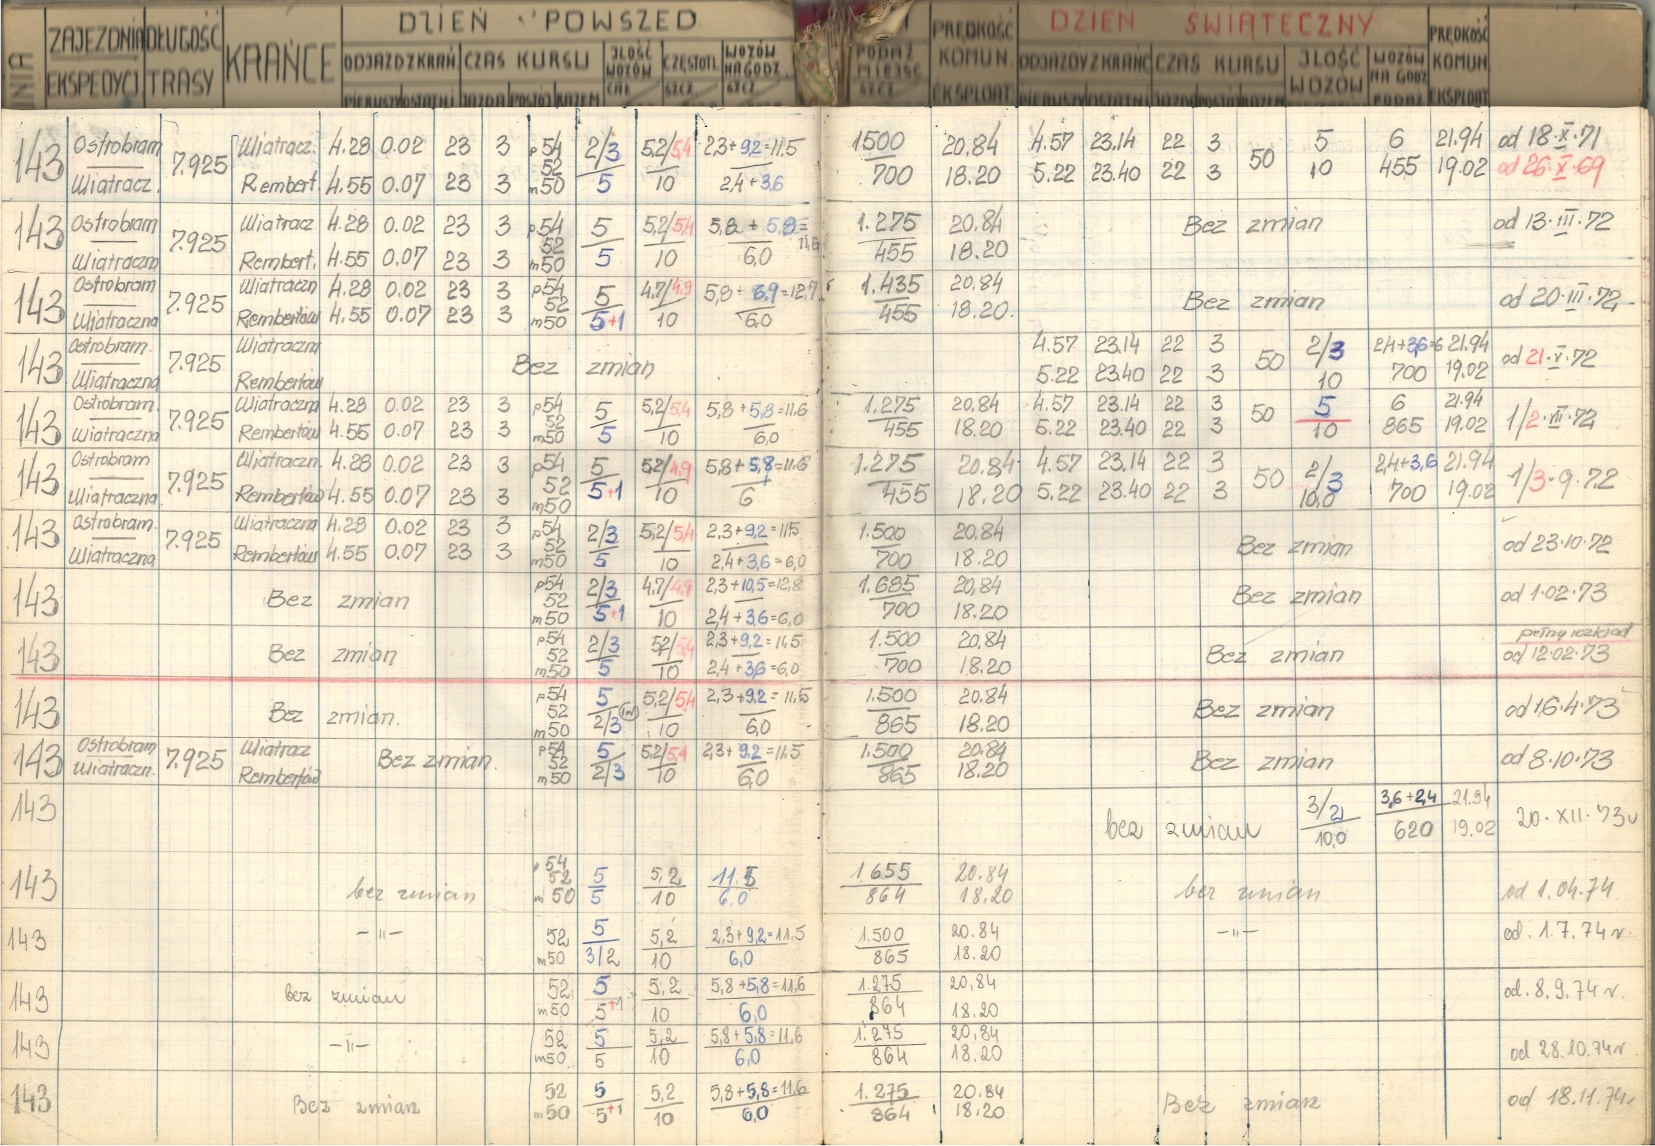 DZIEŃ POWSZED
DZIEŃ ŚWIĄTECZNY
ZAJEZDNIA DŁUGOŚĆ KRAŃCE ODJAZD Z KRAŃ. CZAS KURSU ILOŚĆ WOZÓW CZĘSTOTL. WOZÓW NA GODZ. PODAŻ MIEJSC PRĘDKOŚĆ KOMUN. ODJAZDY Z KRAŃC CZAS KURSU ILOŚĆ WOZÓW WOZÓW NA GODZ PRĘDKOŚĆ KOMUN
EKSPEDYCJ TRASY PIERWSZY OSTATNI JAZDA POSTÓJ RAZEM SZCZ. SZCZ. SZCZ. EKSPLOAT PIERWSZY OSTATNI JAZDA POSTÓJ RAZEM PODAŻ EKSPLOAT
143 Ostrobram 7.925 Wiatracz. 4.28 0.02 23 3 p54 2/3 5,2/5,4 2,3+9,2=11.5 1500 20.84 4.57 23.14 22 3 50 5 6 21.94 od 18·X·71
Wiatracz. Rembert. 4.55 0.07 23 3 52 m50 5 10 2,4+3,6 700 18.20 5.22 23.40 22 3 10 455 19.02 od 26·X·69
143 Ostrobram 7.925 Wiatracz. 4.28 0.02 23 3 p54 5 5,2/5,4 5,8+5,8= 1.275 20.84 Bez zmian od 13·III·72
Wiatraczna Rembert. 4.55 0.07 23 3 52 m50 5 10 6,0 455 18.20
143 Ostrobram 7.925 Wiatraczn 4.28 0.02 23 3 p54 5 4.7/4,9 5,8+6,9=12,7 1.435 20.84 Bez zmian od 20·III·72
Wiatraczna Rembertów 4.55 0.07 23 3 52 m50 5+1 10 6,0 455 18.20.
143 Ostrobram. 7.925 Wiatraczna Bez zmian 4.57 23.14 22 3 50 2/3 2,4+3,6=6 21.94 od 21·V·72
Wiatraczna Rembertów 5.22 23.40 22 3 10 700 19.02
143 Ostrobram. 7.925 Wiatraczna 4.28 0.02 23 3 p54 5 5,2/5,4 5,8+5,8=11.6 1.275 20.84 4.57 23.14 22 3 50 5 6 21.94 1/2·VII·72
Wiatraczna Rembertów 4.55 0.07 23 3 52 m50 5 10 6,0 455 18.20 5.22 23.40 22 3 10 865 19.02
143 Ostrobram 7.925 Wiatraczn. 4.28 0.02 23 3 p54 5 5,2/4,9 5,8+5,8=11.6 1.275 20.84 4.57 23.14 22 3 50 2/3 2,4+3,6 21.94 1/3·9.72
Wiatraczna Rembertów 4.55 0.07 23 3 52 m50 5+1 10 6 455 18.20 5.22 23.40 22 3 10,0 700 19.02
143 Ostrobram. 7.925 Wiatraczna 4.28 0.02 23 3 p54 2/3 5,2/5,4 2,3+9,2=11,5 1.500 20.84 Bez zmian od 23·10.72
Wiatraczna Rembertów 4.55 0.07 23 3 52 m50 5 10 2,4+3,6=6,0 700 18.20
143 Bez zmian p54 2/3 4,7/4,9 2,3+10,5=12,8 1.685 20,84 Bez zmian od 1·02·73
52 m50 5+1 10 2,4+3,6=6,0 700 18.20
pełny rozkład
143 Bez zmian p54 2/3 5,2/5,4 2,3+9,2=11,5 1.500 20,84 Bez zmian od 12·02·73
52 m50 5 10 2,4+3,6=6,0 700 18.20
143 Bez zmian. p54 5 5,2/5,4 2,3+9,2=11,5 1.500 20.84 Bez zmian od 16·4·73
52 m50 2/3 10 6,0 865 18.20
143 Ostrobram 7.925 Wiatracz Bez zmian. p54 5 5,2/5,4 2,3+9,2=11.5 1.500 20.84 Bez zmian od 8·10·73
Wiatraczn. Rembertów 52 m50 2/3 10 6,0 865 18.20
143 bez zmian 3/2 3,6+2,4 21.94 20·XII·73r
10,0 620 19.02
143 bez zmian 54 5 5,2 11.5 1 655 20.84 bez zmian od 1.04.74
52 m 50 5 10 6.0 864 18.20
143 -"- 52 5 5,2 2,3+9,2=11.5 1.500 20.84 -"- od. 1.7.74r.
m50 3/2 10 6,0 865 18.20
143 bez zmian 52 5 5,2 5,8+5,8=11,6 1.275 20,84 od. 8.9.74r.
m50 5+1 10 6,0 864 18.20
143 -"- 52 5 5,2 5,8+5,8=11.6 1.275 20,84 od 28.10.74r
m50 5 10 6,0 864 18.20
143 Bez zmian 52 5 5,2 5,8+5,8=11.6 1.275 20.84 Bez zmian od 18.11.74r.
m50 5+1 10 6,0 864 18.20